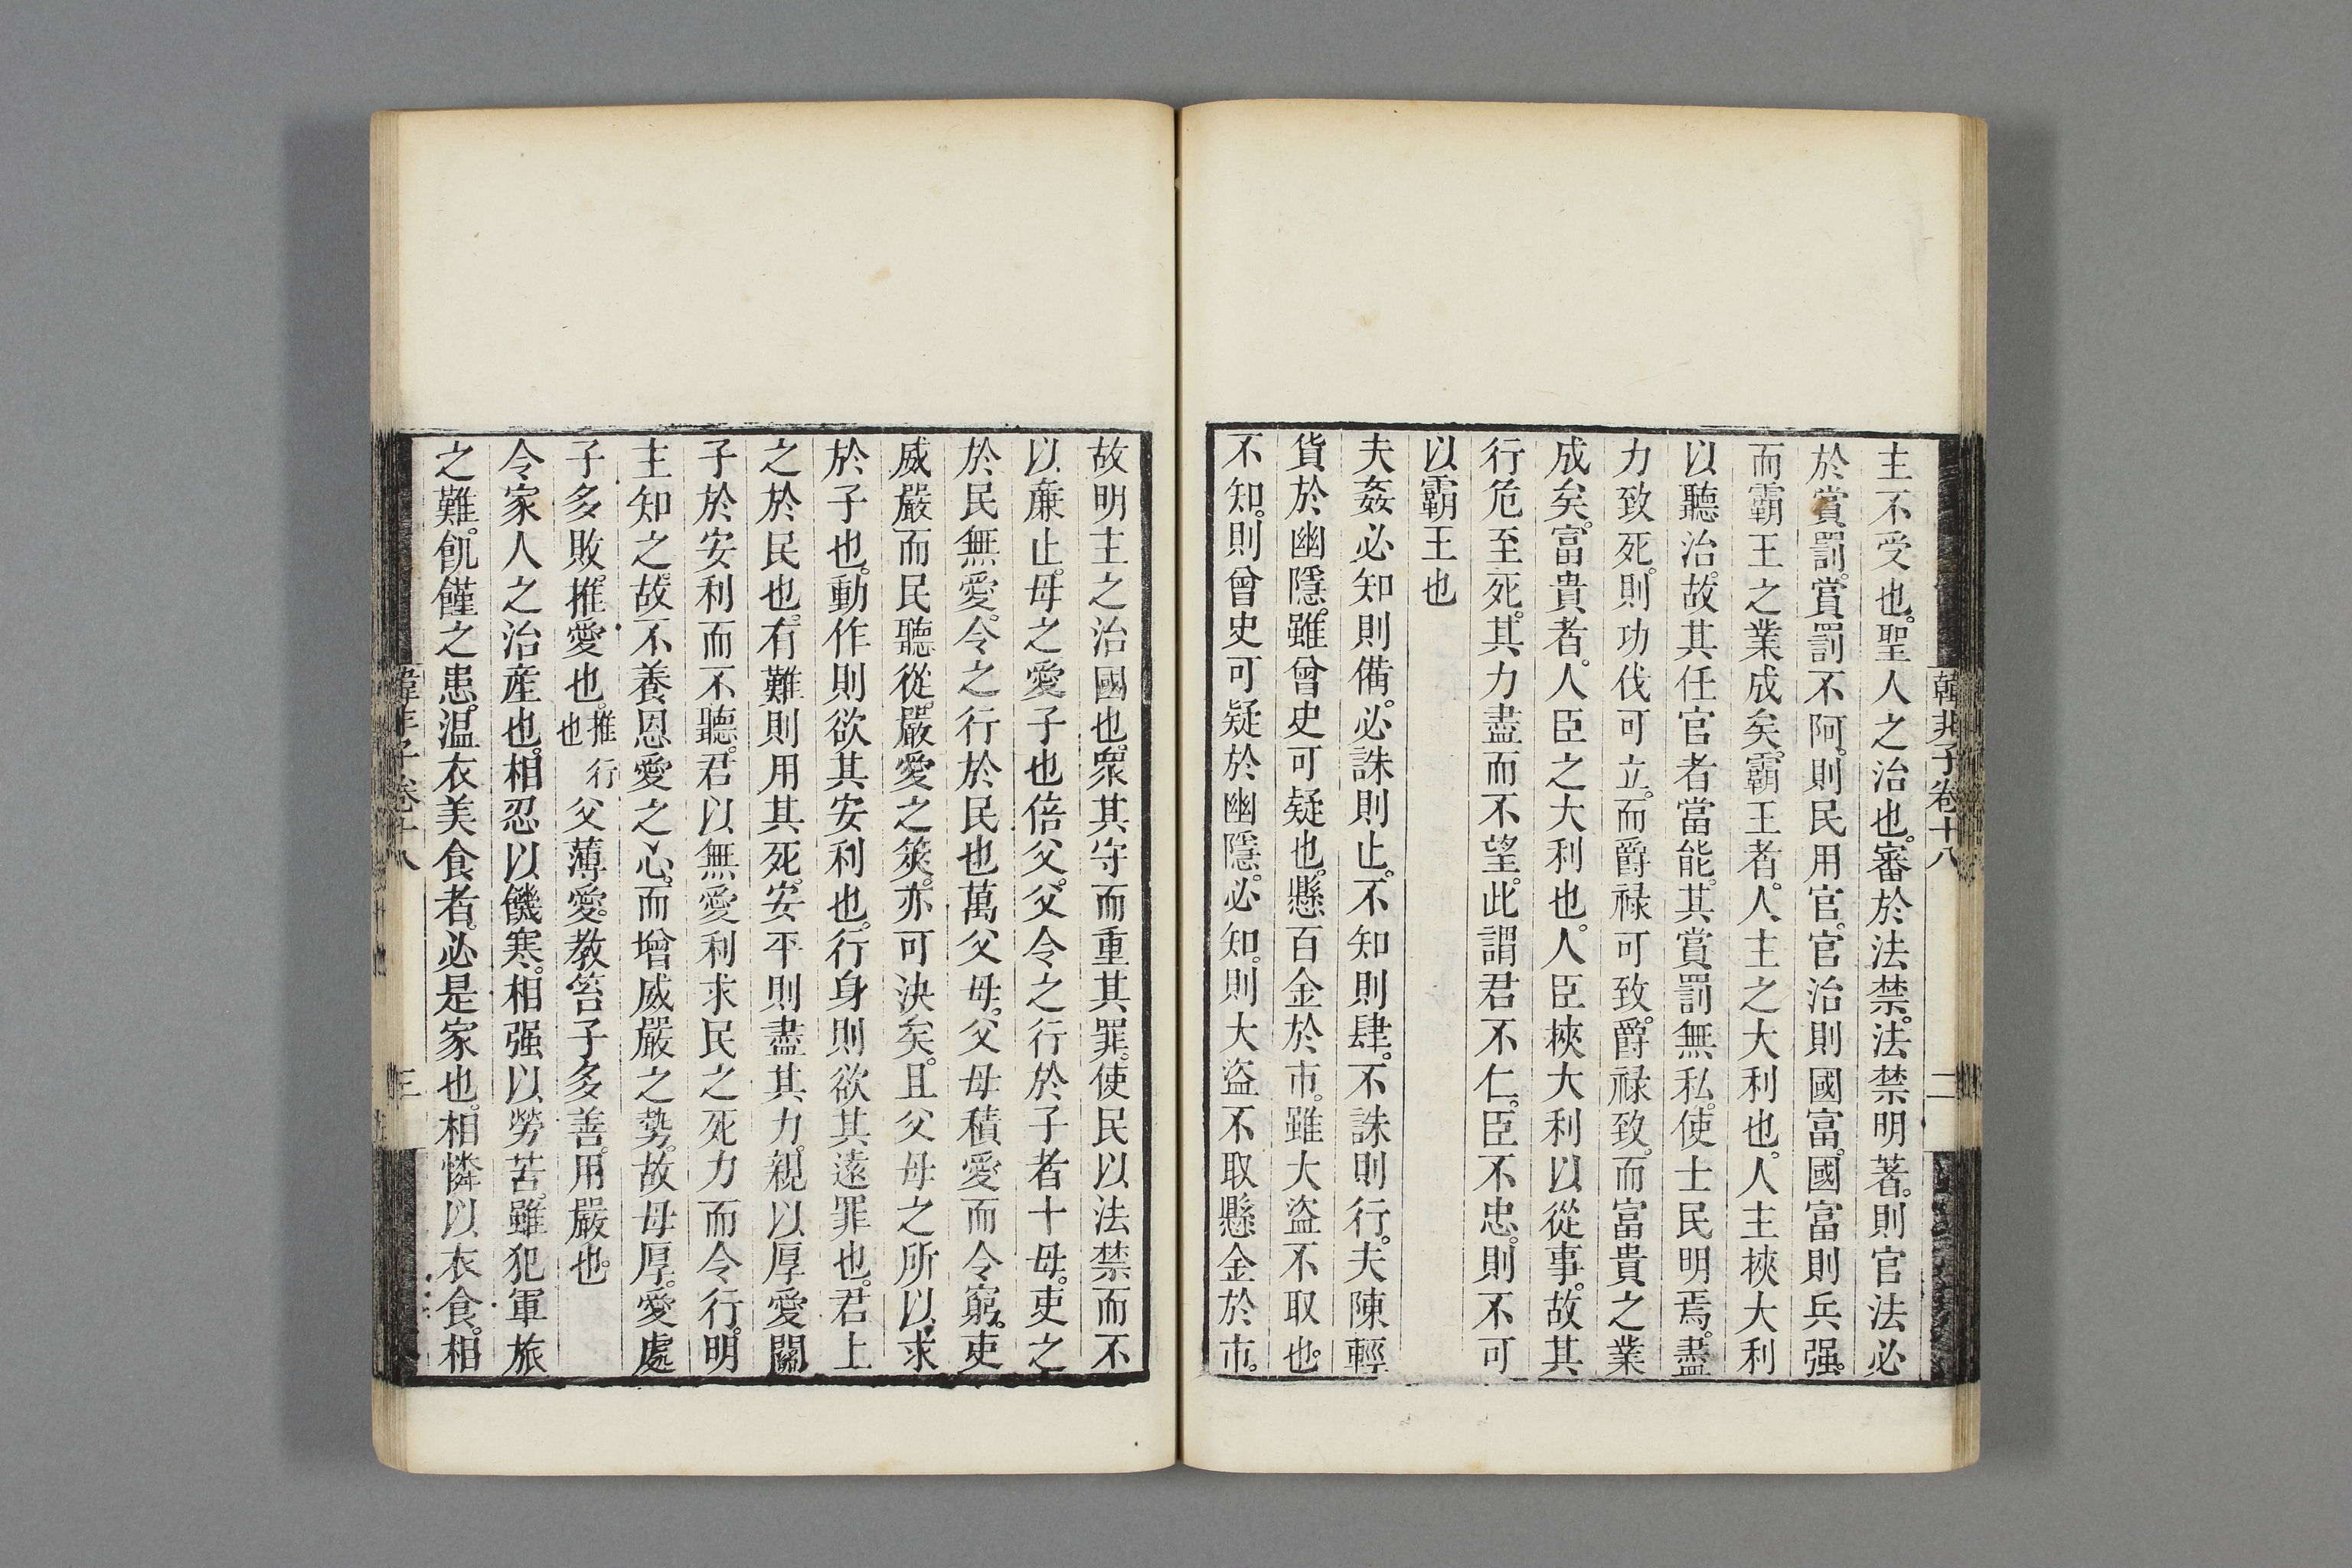 韓非子卷十八
二
主不受也。聖人之治也。審於法禁。法禁明著。則官法必
於賞罰。賞罰不阿。則民用官。官治則國富。國富則兵强。
而霸王之業成矣。霸王者。人主之大利也。人主挾大利
以聽治。故其任官者當能。其賞罰無私。使士民明焉。盡
力致死。則功伐可立。而爵祿可致。爵祿致。而富貴之業
成矣。富貴者。人臣之大利也。人臣挾大利以從事。故其
行危至死。其力盡而不望。此謂君不仁。臣不忠。則不可
以霸王也
夫姦必知則備。必誅則止。不知則肆。不誅則行。夫陳輕
貨於幽隱。雖曾史可疑也。懸百金於市。雖大盜不取也。
不知。則曾史可疑於幽隱。必知。則大盜不取懸金於市。
故明主之治國也。衆其守而重其罪。使民以法禁而不
以廉止。母之愛子也倍父。父令之行於子者十母。吏之
於民無愛。令之行於民也萬父母。父母積愛而令窮。吏
威嚴而民聽從。嚴愛之筴。亦可決矣。且父母之所以求
於子也。動作則欲其安利也。行身則欲其遠罪也。君上
之於民也。有難則用其死。安平則盡其力。親以厚愛關
子於安利而不聽。君以無愛利求民之死力而令行。明
主知之。故不養恩愛之心。而增威嚴之勢。故母厚。愛處
子多敗。推愛也。推行也父薄愛。教笞子多善。用嚴也。
令家人之治產也。相忍以饑寒。相强以勞苦。雖犯軍旅
之難。飢饉之患。溫衣美食者。必是家也。相憐以衣食。相
韓非子卷十八
三